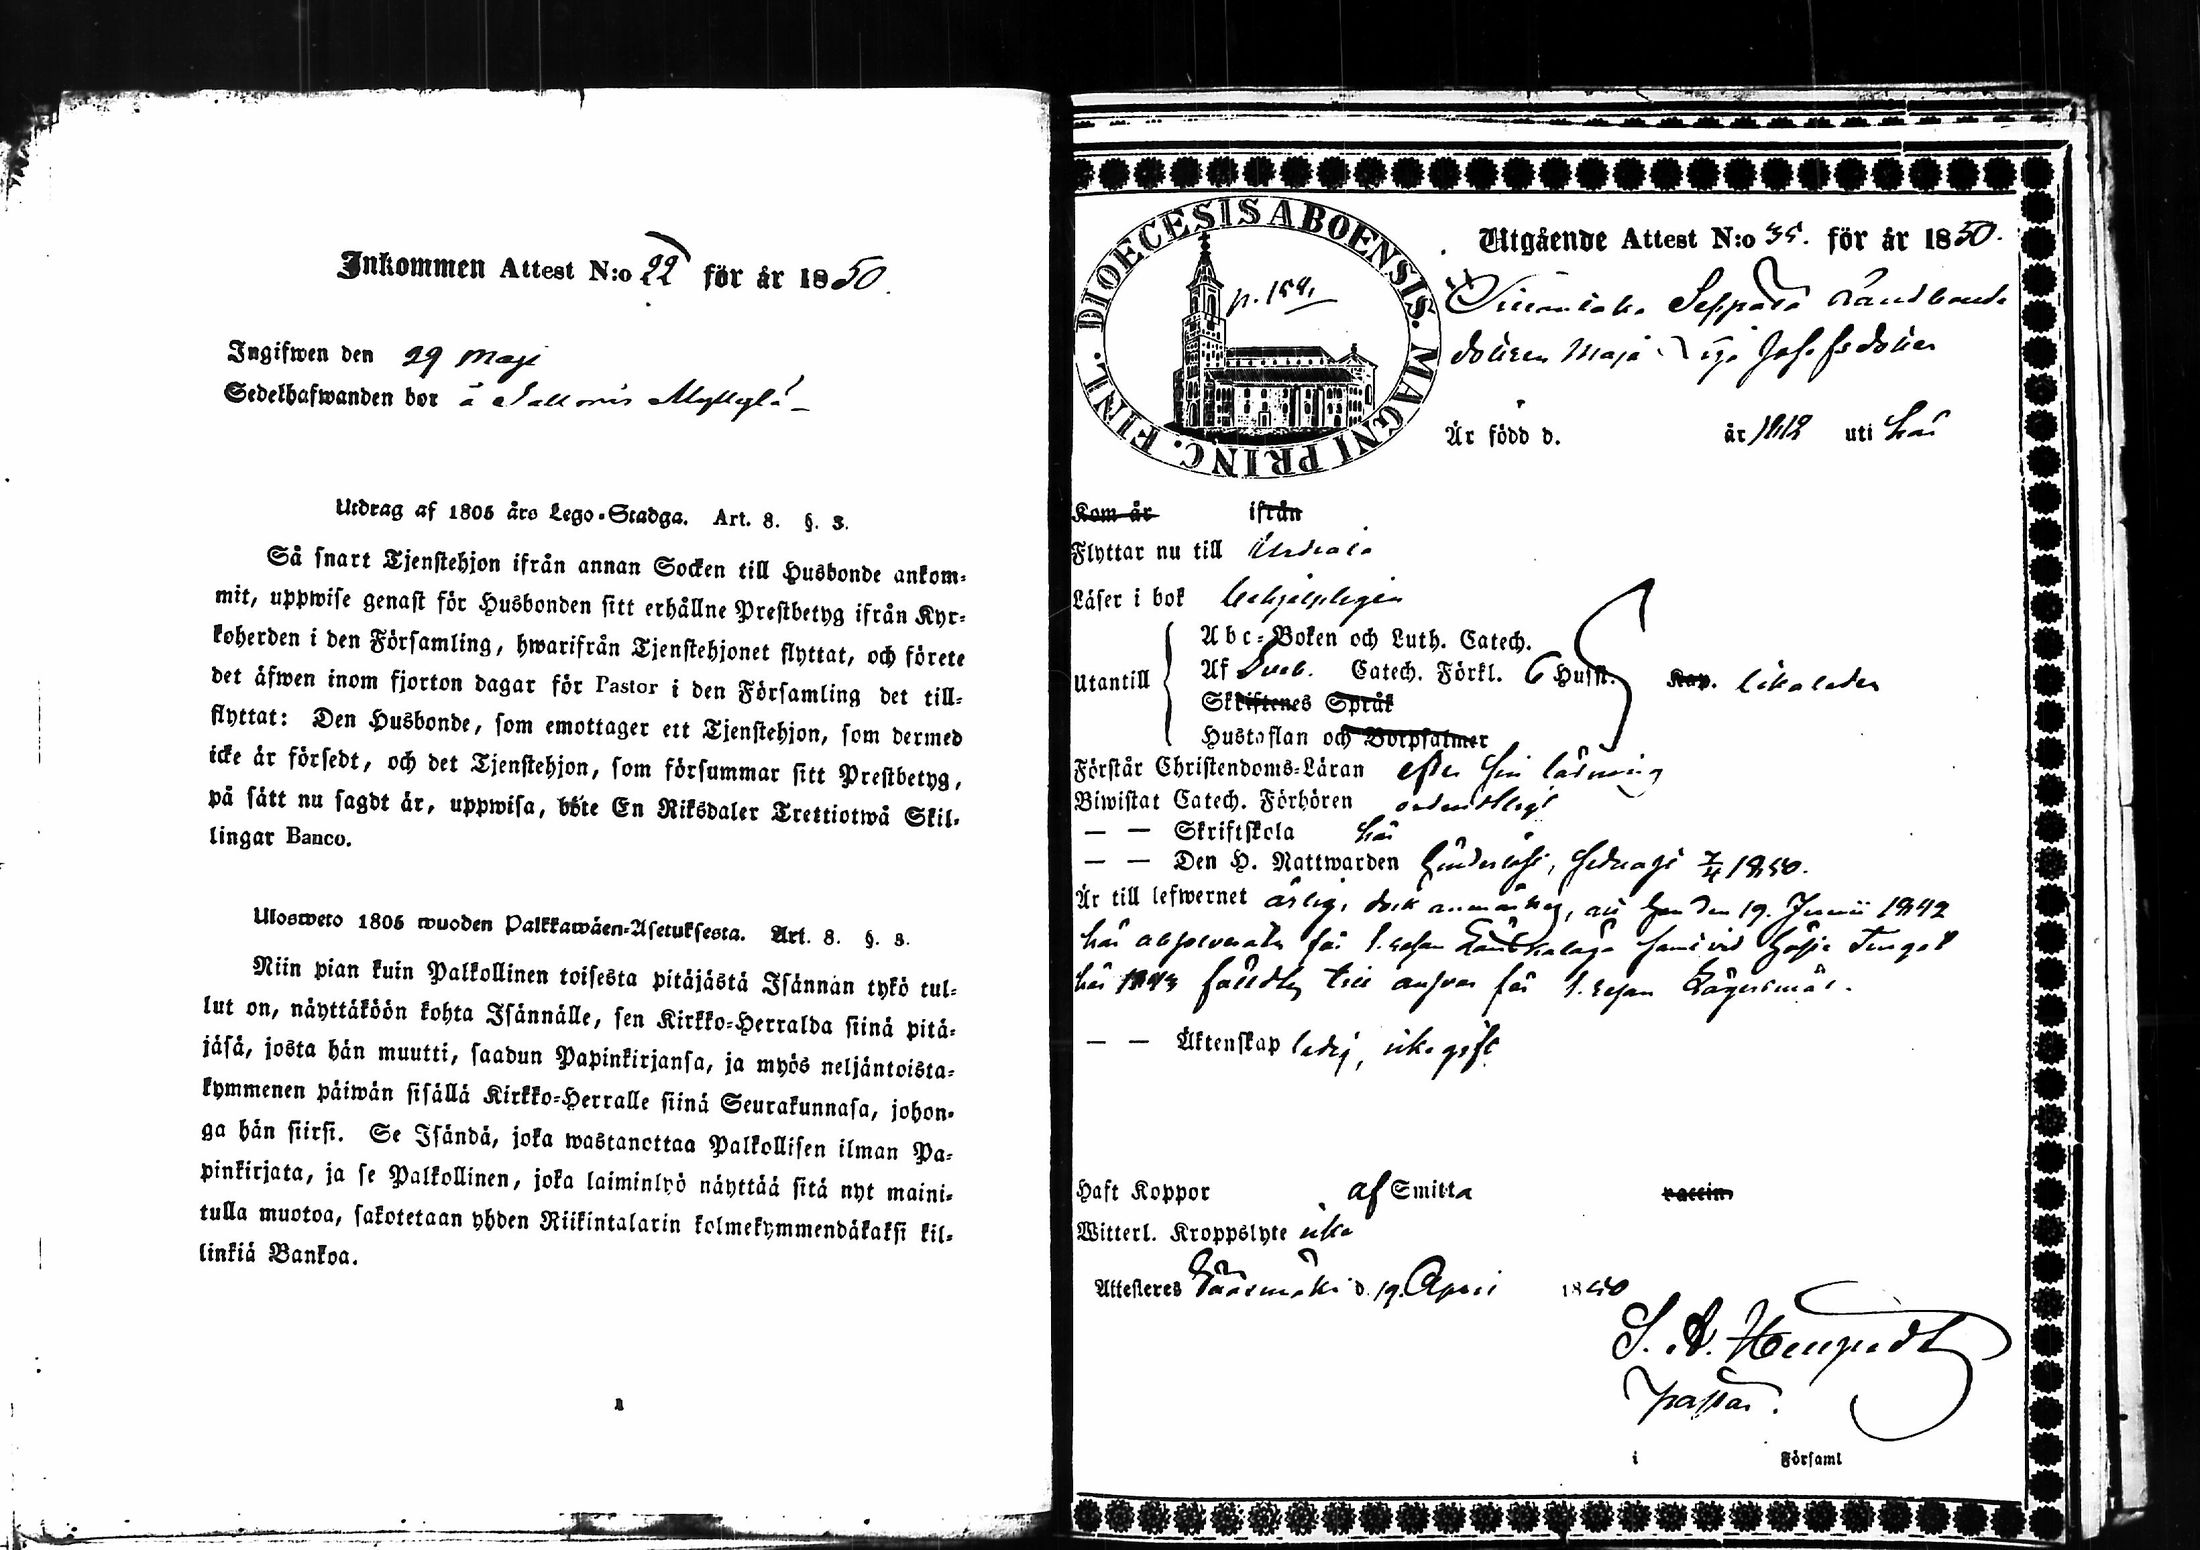 Inkommen Attest N:o 22 för år 1850.
Ingifwen den 29 Maji
Sedelhafwanden bor å
Utdrag af 1805 års Lego-Stadga. Art. 8. §. 3.
Så snart Tjenstehjon ifrån annan Socken till Husbonde ankom-
mit, uppwise genast för Husbonden sitt erhållne Prestbetyg ifrån Kyr-
koherden i den Församling, hwarifrån Tjenstehjonet flyttat, och förete
det äfwen inom fjorton dagar för Pastor i den Församling det till-
flyttat: Den Husbonde, som emottager ett Tjenstehjon, som dermed
icke är försedt, och det Tjenstehjon, som försummar sitt Prestbetyg,
på sätt nu sagdt är, uppwisa, böte En Riksdaler Trettiotwå Skil-
lingar Banco.
Ulosweto 1805 wuoden Palkkawäen-Asetuksesta. Art. 8. §. 3.
Niin pian kuin Palkollinen toisesta pitäjästä Isännän tykö tul-
lut on, näyttäköön kohta Isännälle, sen Kirkko-Herralda siinä pitä-
jäsä, josta hän muutti, saadun Papinkirjansa, ja myös neljäntoista-
kymmenen päiwän sisällä Kirkko-Herralle siinä Seurakunnasa, johon-
ga hän siirsi. Se Isändä, joka wastanottaa Palkollisen ilman Pa-
pinkirjata, ja se Palkollinen, joka laiminlyö näyttää sitä nyt maini-
tulla muotoa, sakotetaan yhden Riikintalarin kolmekymmendäkaksi kil-
linkiä Bankoa.
DIOECESIS ABOENSIS. MAGNI PRINC. FINL.
p. 154.
Utgående Attest N:o 35. för år 1850.
Seppälä
dottren Maja Josefsdotter
Är född d. år 1812 uti här
Kom år ifrån
Flyttar nu till Urdiala
Läser i bok behjelpligen
Utantill
Abc-Boken och Luth. Catech.
Af Sveb. Catech. Förkl. 6 Husst. Kap. likaledes
Skriftenes Språk
Hustaflan och Botpsalmer
Förstår Christendoms-Läran efter sin läsning
Biwistat Catech. Förhören ordentligt
— — Skriftskola här
— — Den H. Nattwarden sednast 7/4 1850.
Är till lefwernet ärlig, dock anmärkes, att hon den 19. Junii 1842
här för 1. resan samt vid Ting
här 1843 till answar för 1. resan Lägersmål.
— — Äktenskap ledig, icke gift
Haft Koppor af Smitta vaccin.
Witterl. Kroppslyte icke
Attesteres Sääxmäki d. 19. April 1850
Pastor.
i Församl